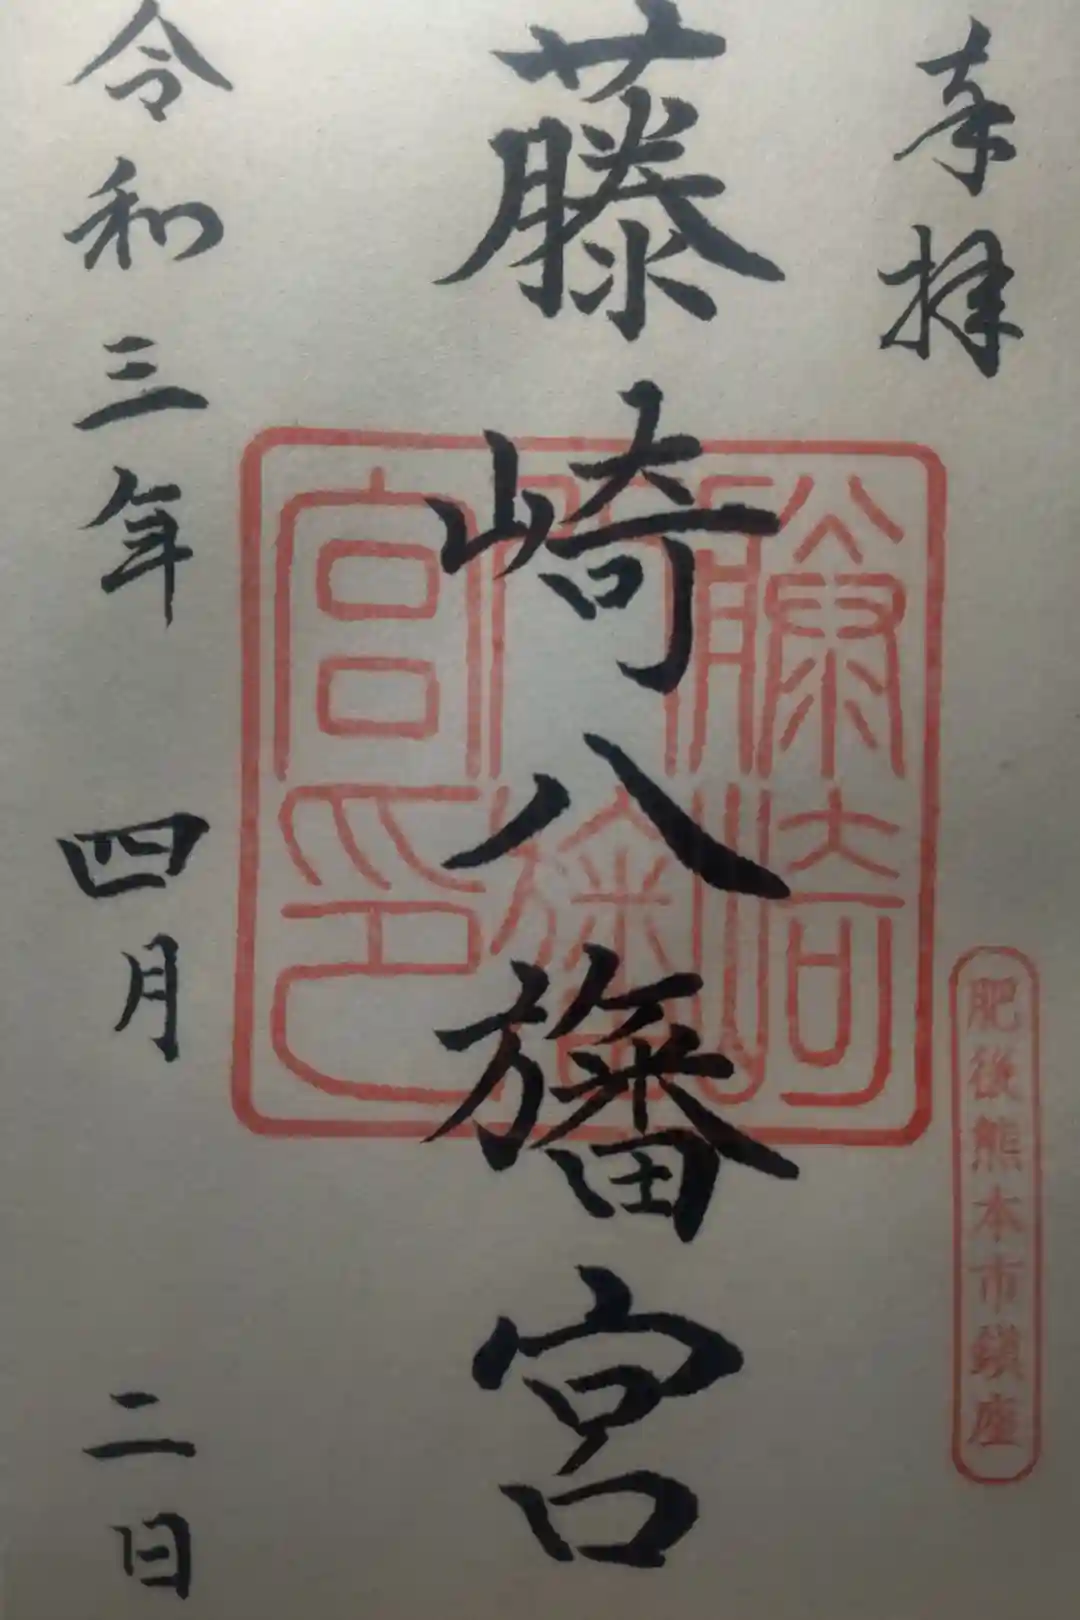 奉拝
肥後熊本市鎮座
藤崎八旛宮
藤崎
八旛
宮印
令和三年 四月 二日